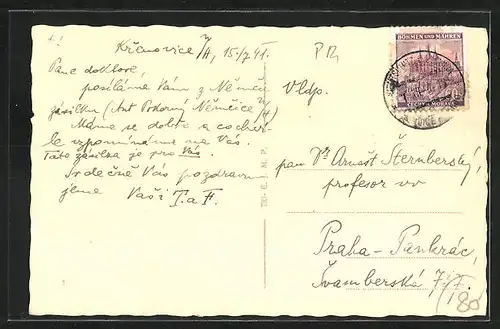 Křenovice n/H, 15./7 41.
Pane doktore,
posíláme Vám z Němčic
zásilku (Ant Pokorný Němčice n/H)
Máme se dobře a
vzpomínáme na Vás.
Tato zásilka je pro Vás.
Srdečně Vás pozdravu
jeme Vaši T. a F.
BÖHMEN UND MÄHREN
ČECHY a MORAVA
Vldp.
pan Dr Arnošt Šternberský,
profesor vv
Praha - Pankrác,
Švamberská
180